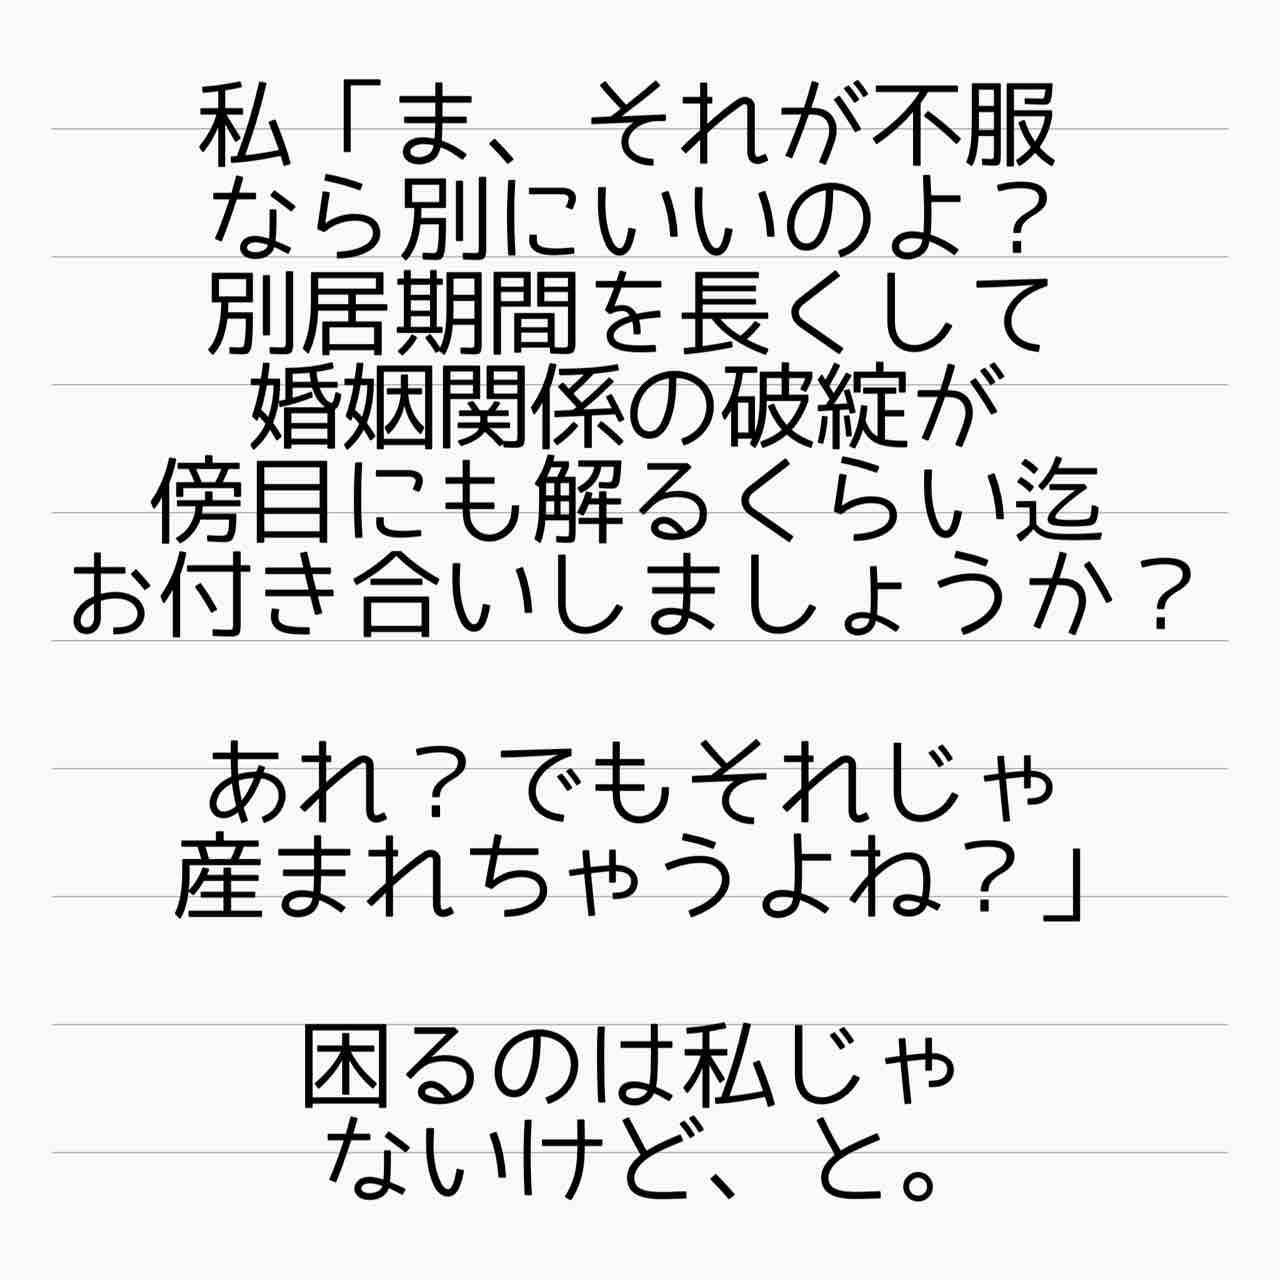 私「ま、それが不服
なら別にいいのよ？
別居期間を長くして
婚姻関係の破綻が
傍目にも解るくらい迄
お付き合いしましょうか？
あれ？でもそれじゃ
産まれちゃうよね？」
困るのは私じゃ
ないけど、と。